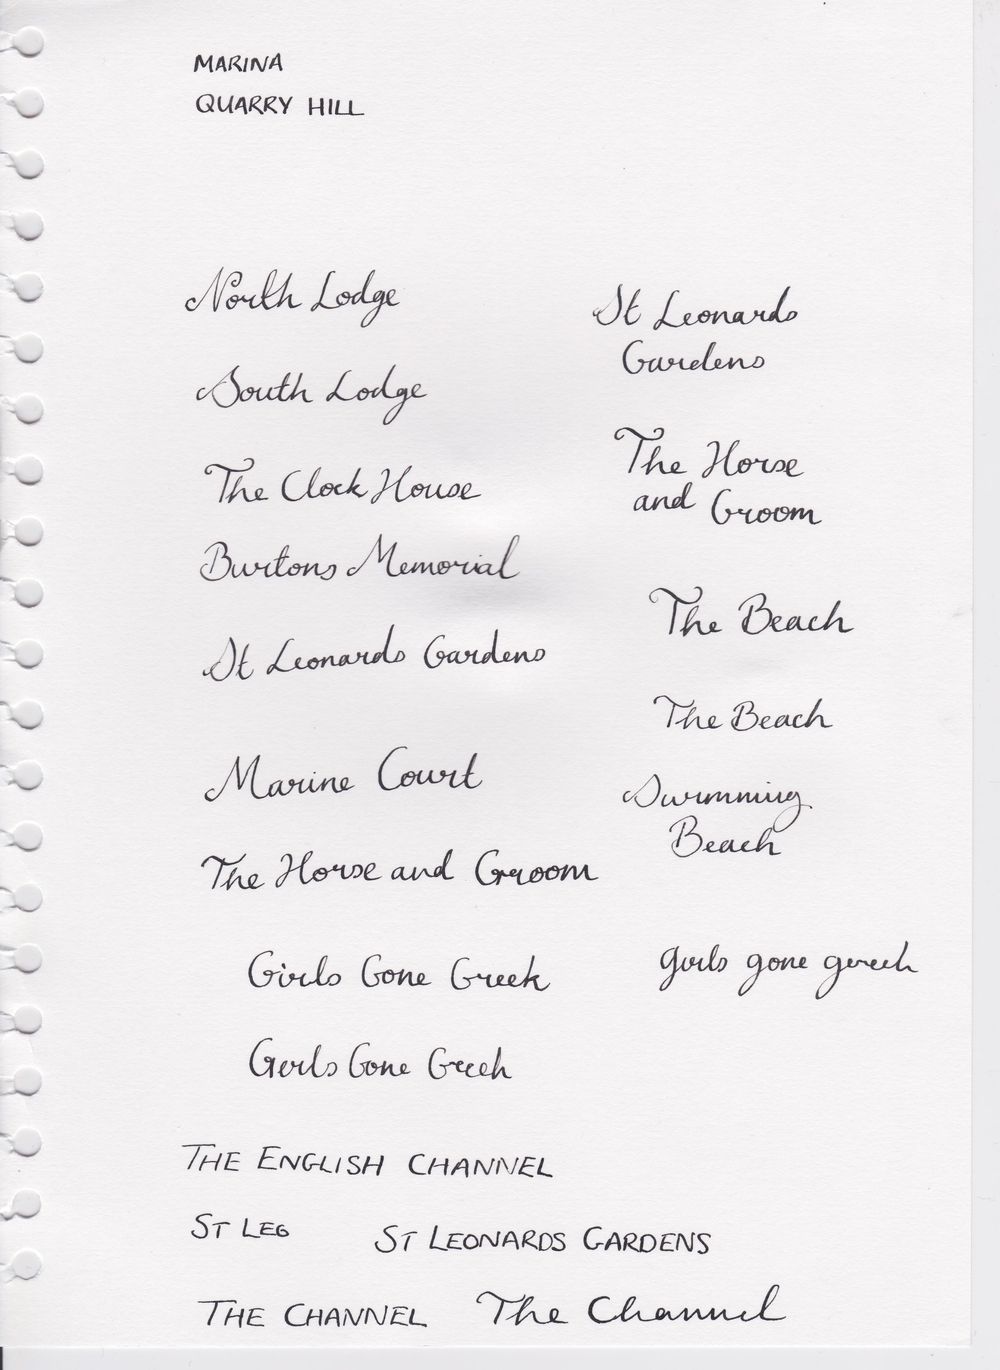 MARINA
QUARRY HILL
North Lodge
South Lodge
The Clock House
Burtons Memorial
St Leonards Gardens
Marine Court
The Horse and Groom
Girls Gone Greek
Girls Gone Greek
St Leonards
Gardens
The Horse
and Groom
The Beach
The Beach
Swimming
Beach
girls gone greek
THE ENGLISH CHANNEL
ST LEG
ST LEONARDS GARDENS
THE CHANNEL
The Channel